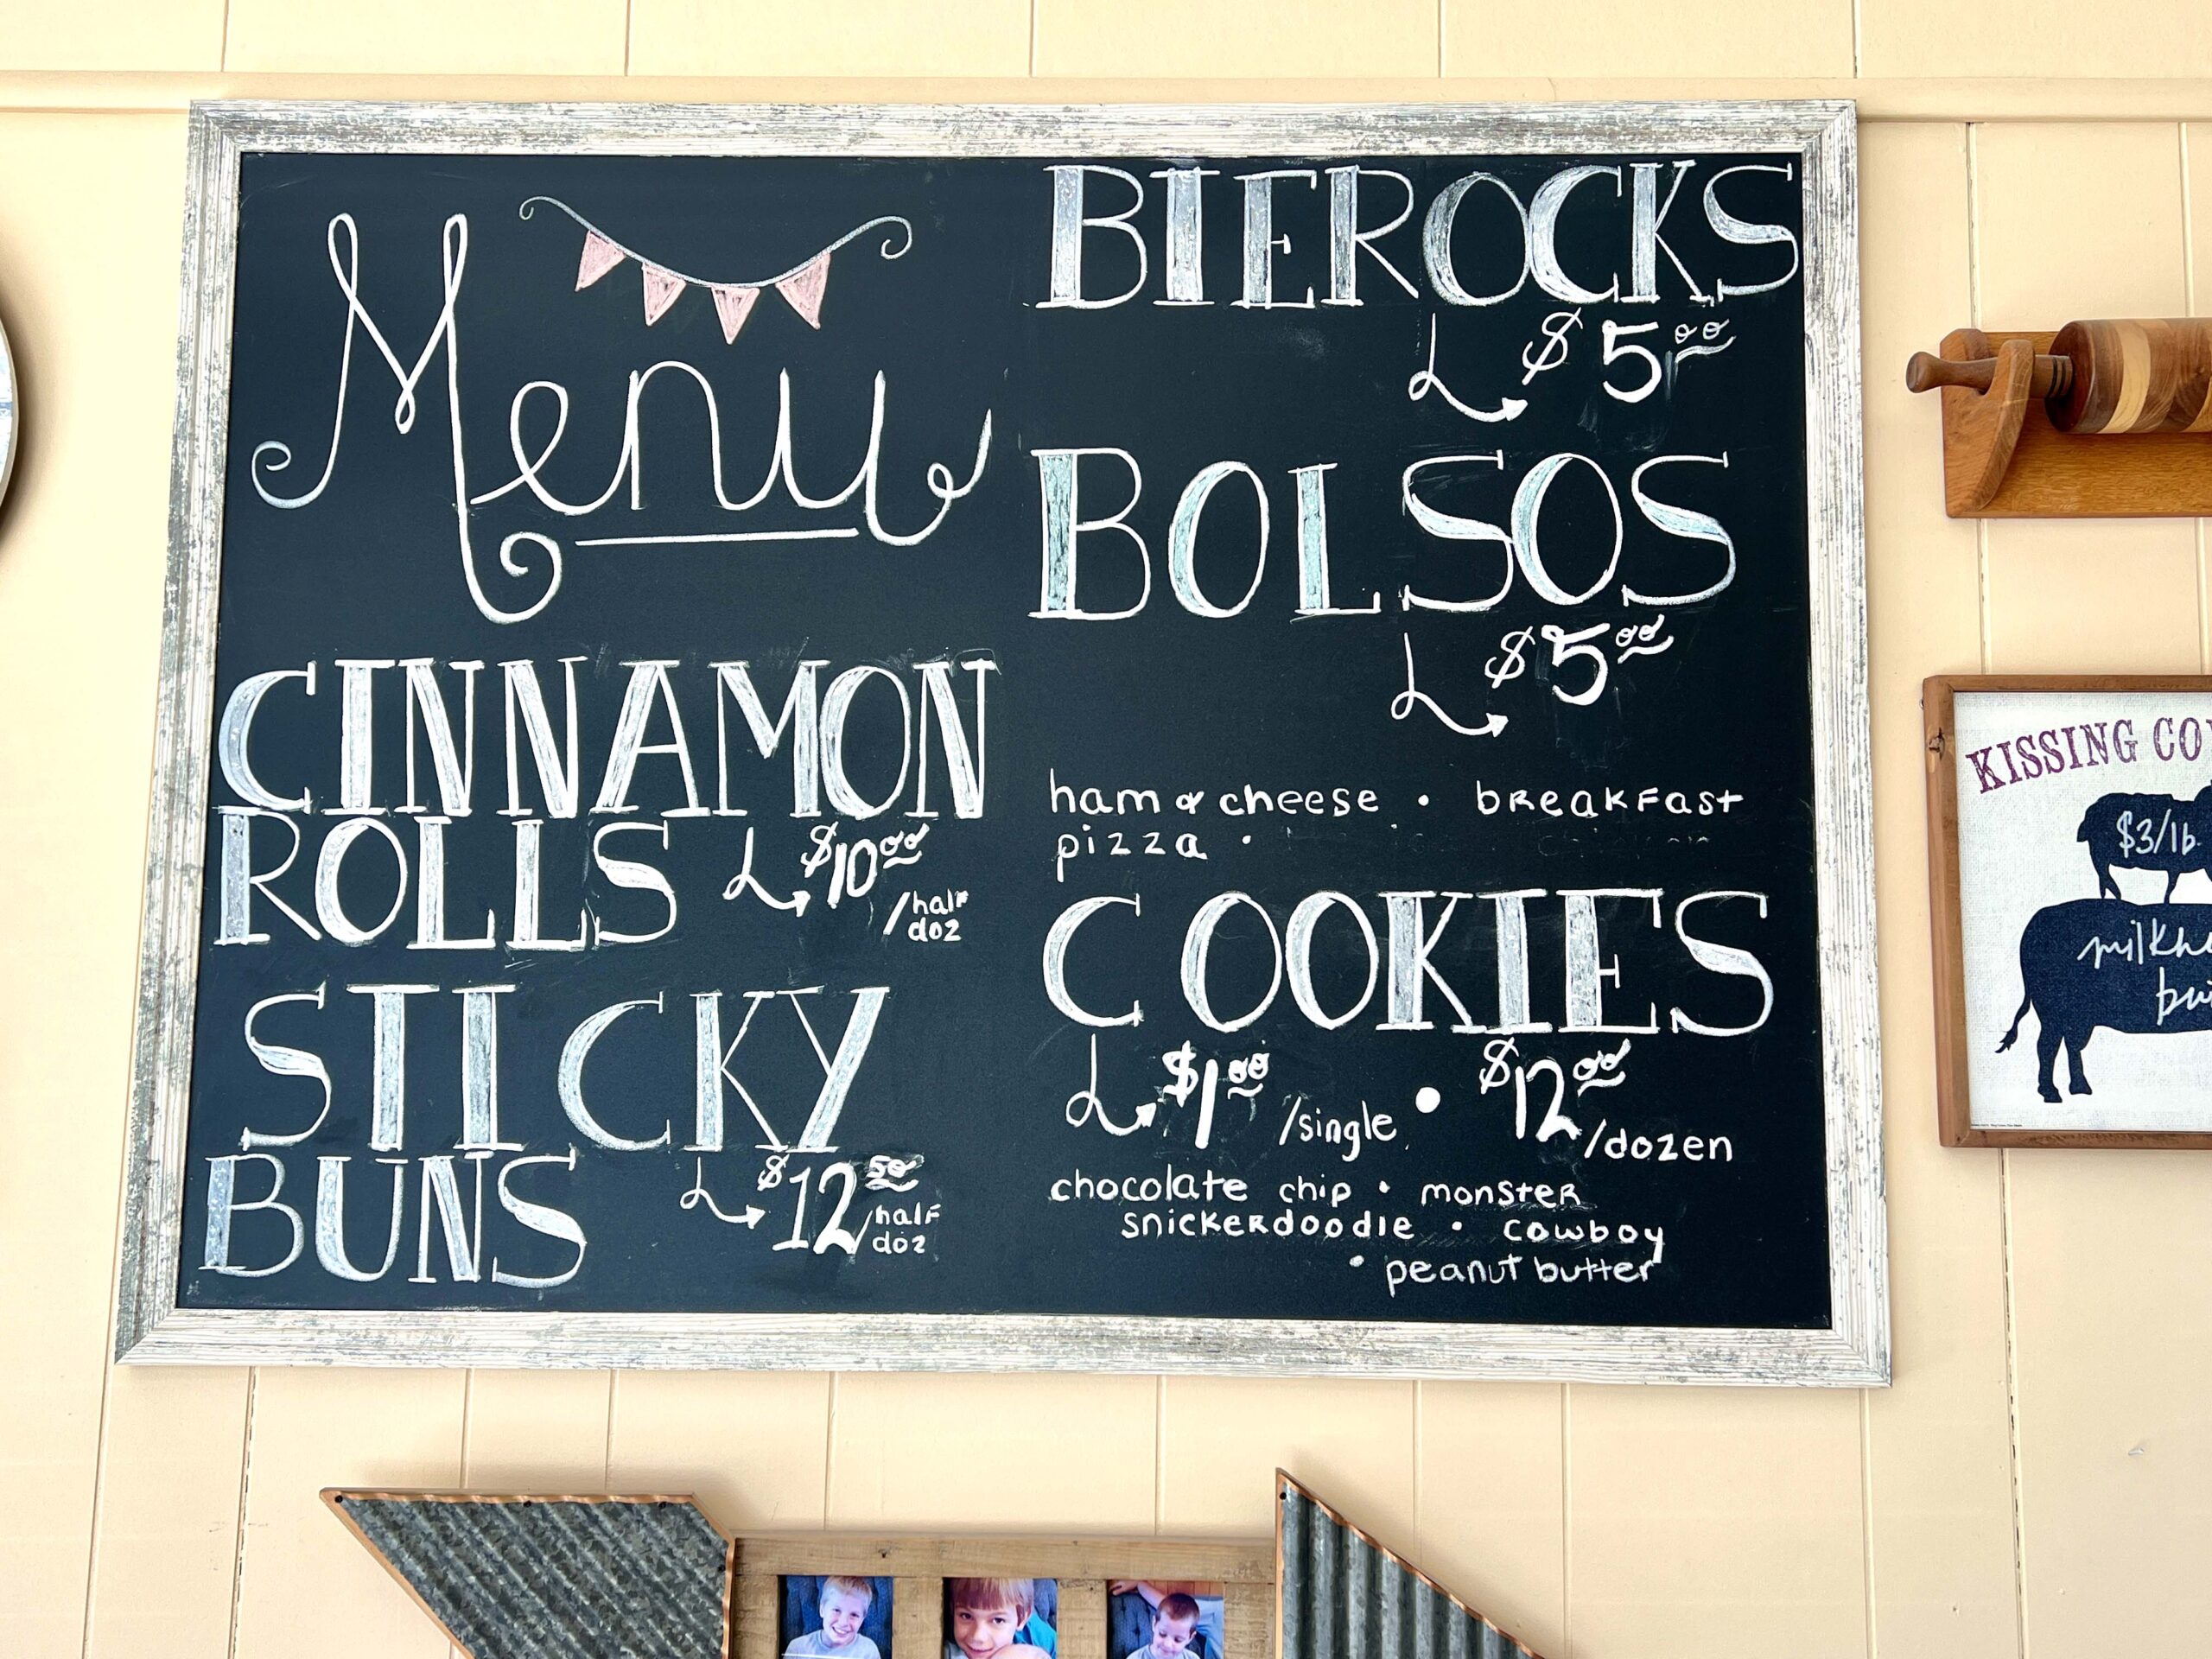 Menu
CINNAMON
ROLLS $10.00
/half
doz
STICKY
BUNS $12.50
/half
doz
BIEROCKS
$5.00
BOLSOS
$5.00
ham & cheese • breakfast
pizza •
COOKIES
$1.00 /single • $12.00 /dozen
chocolate chip • monster
snickerdoodle • cowboy
• peanut butter
KISSING
$3/lb